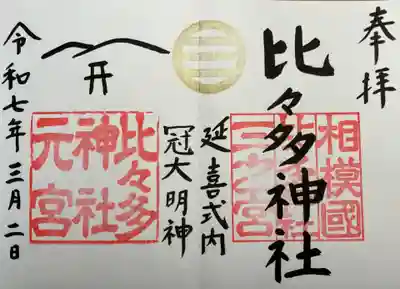 奉拝
比々多神社
相模國
三之宮
比々多神社
延喜式内
冠大明神
比々多
神社
元宮
令和七年三月二日